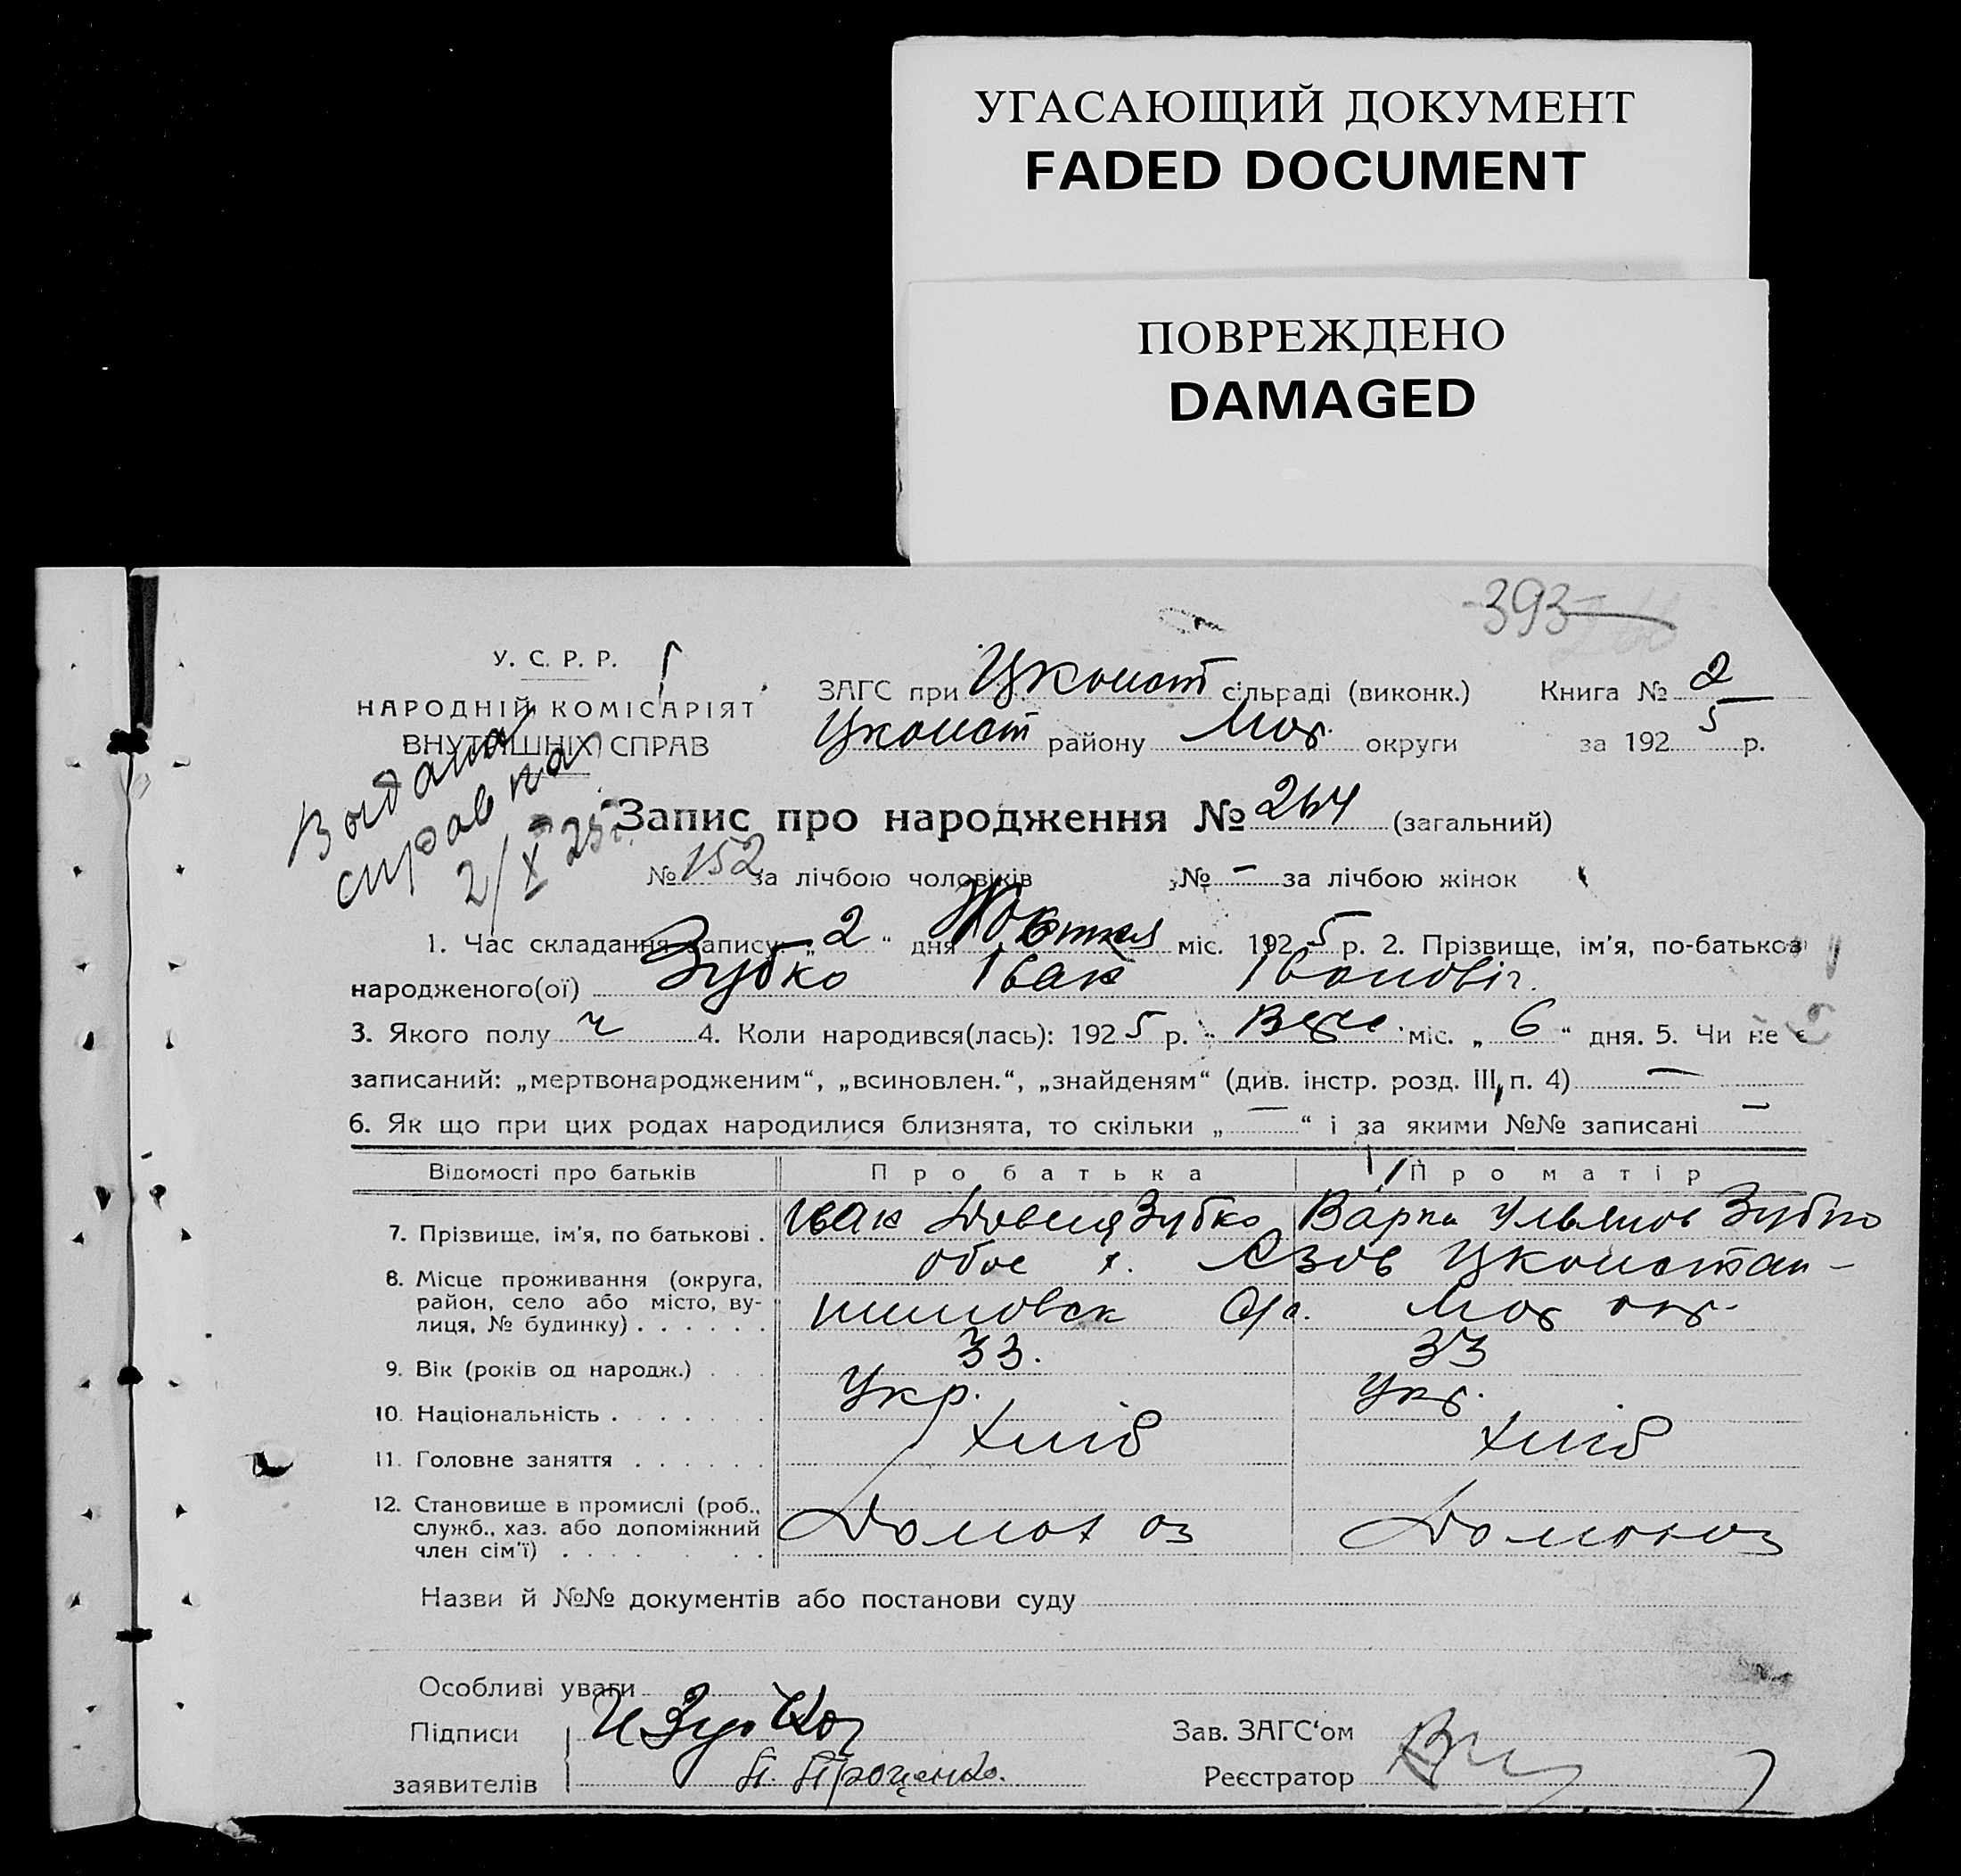 УГАСАЮЩИЙ ДОКУМЕНТ
FADED DOCUMENT
ПОВРЕЖДЕНО
DAMAGED
393
У. С. Р. Р.
НАРОДНІЙ КОМІСАРІЯТ
ВНУТРІШНІХ СПРАВ
Выдана
справка
2/X 25г.
ЗАГС при Цконст сільраді (виконк.) Книга № 2
Цконст району Мар. округи за 1925 р.
Запис про народження № 264 (загальний)
№ 152 за лічбою чоловіків № — за лічбою жінок
1. Час складання запису: „2“ дня Жовтня міс. 1925 р. 2. Прізвище, ім'я, по-батькові
народженого(ої) Зубко Іван Іванович.
3. Якого полу ч 4. Коли народився(лась): 1925 р. Вер. міс. „6“ дня. 5. Чи не є
записаний: „мертвонародженим“, „всиновлен.“, „знайденям“ (див. інстр. розд. III, п. 4) —
6. Як що при цих родах народилися близнята, то скільки „—“ і за якими №№ записані —
Відомості про батьків Про батька Про матір
7. Прізвище, ім'я, по батькові . Іван Зубко Варка Ульянов Зубко
8. Місце проживання (округа, район, село або місто, вулиця, № будинку) . . . . . . обое х. Азов Цконстан-
тиновск Мар окр.
9. Вік (років од народж.) . . . 33. 33
10. Національність . . . . . . Укр. Укр.
11. Головне заняття . . . . . . хліб хліб
12. Становище в промислі (роб., служб., хаз. або допоміжний член сім'ї) . . . . . . Домохоз Домохоз
Назви й №№ документів або постанови суду
Особливі уваги
Підписи И Зубко
заявителів П. Проценко.
Зав. ЗАГС'ом
Реєстратор